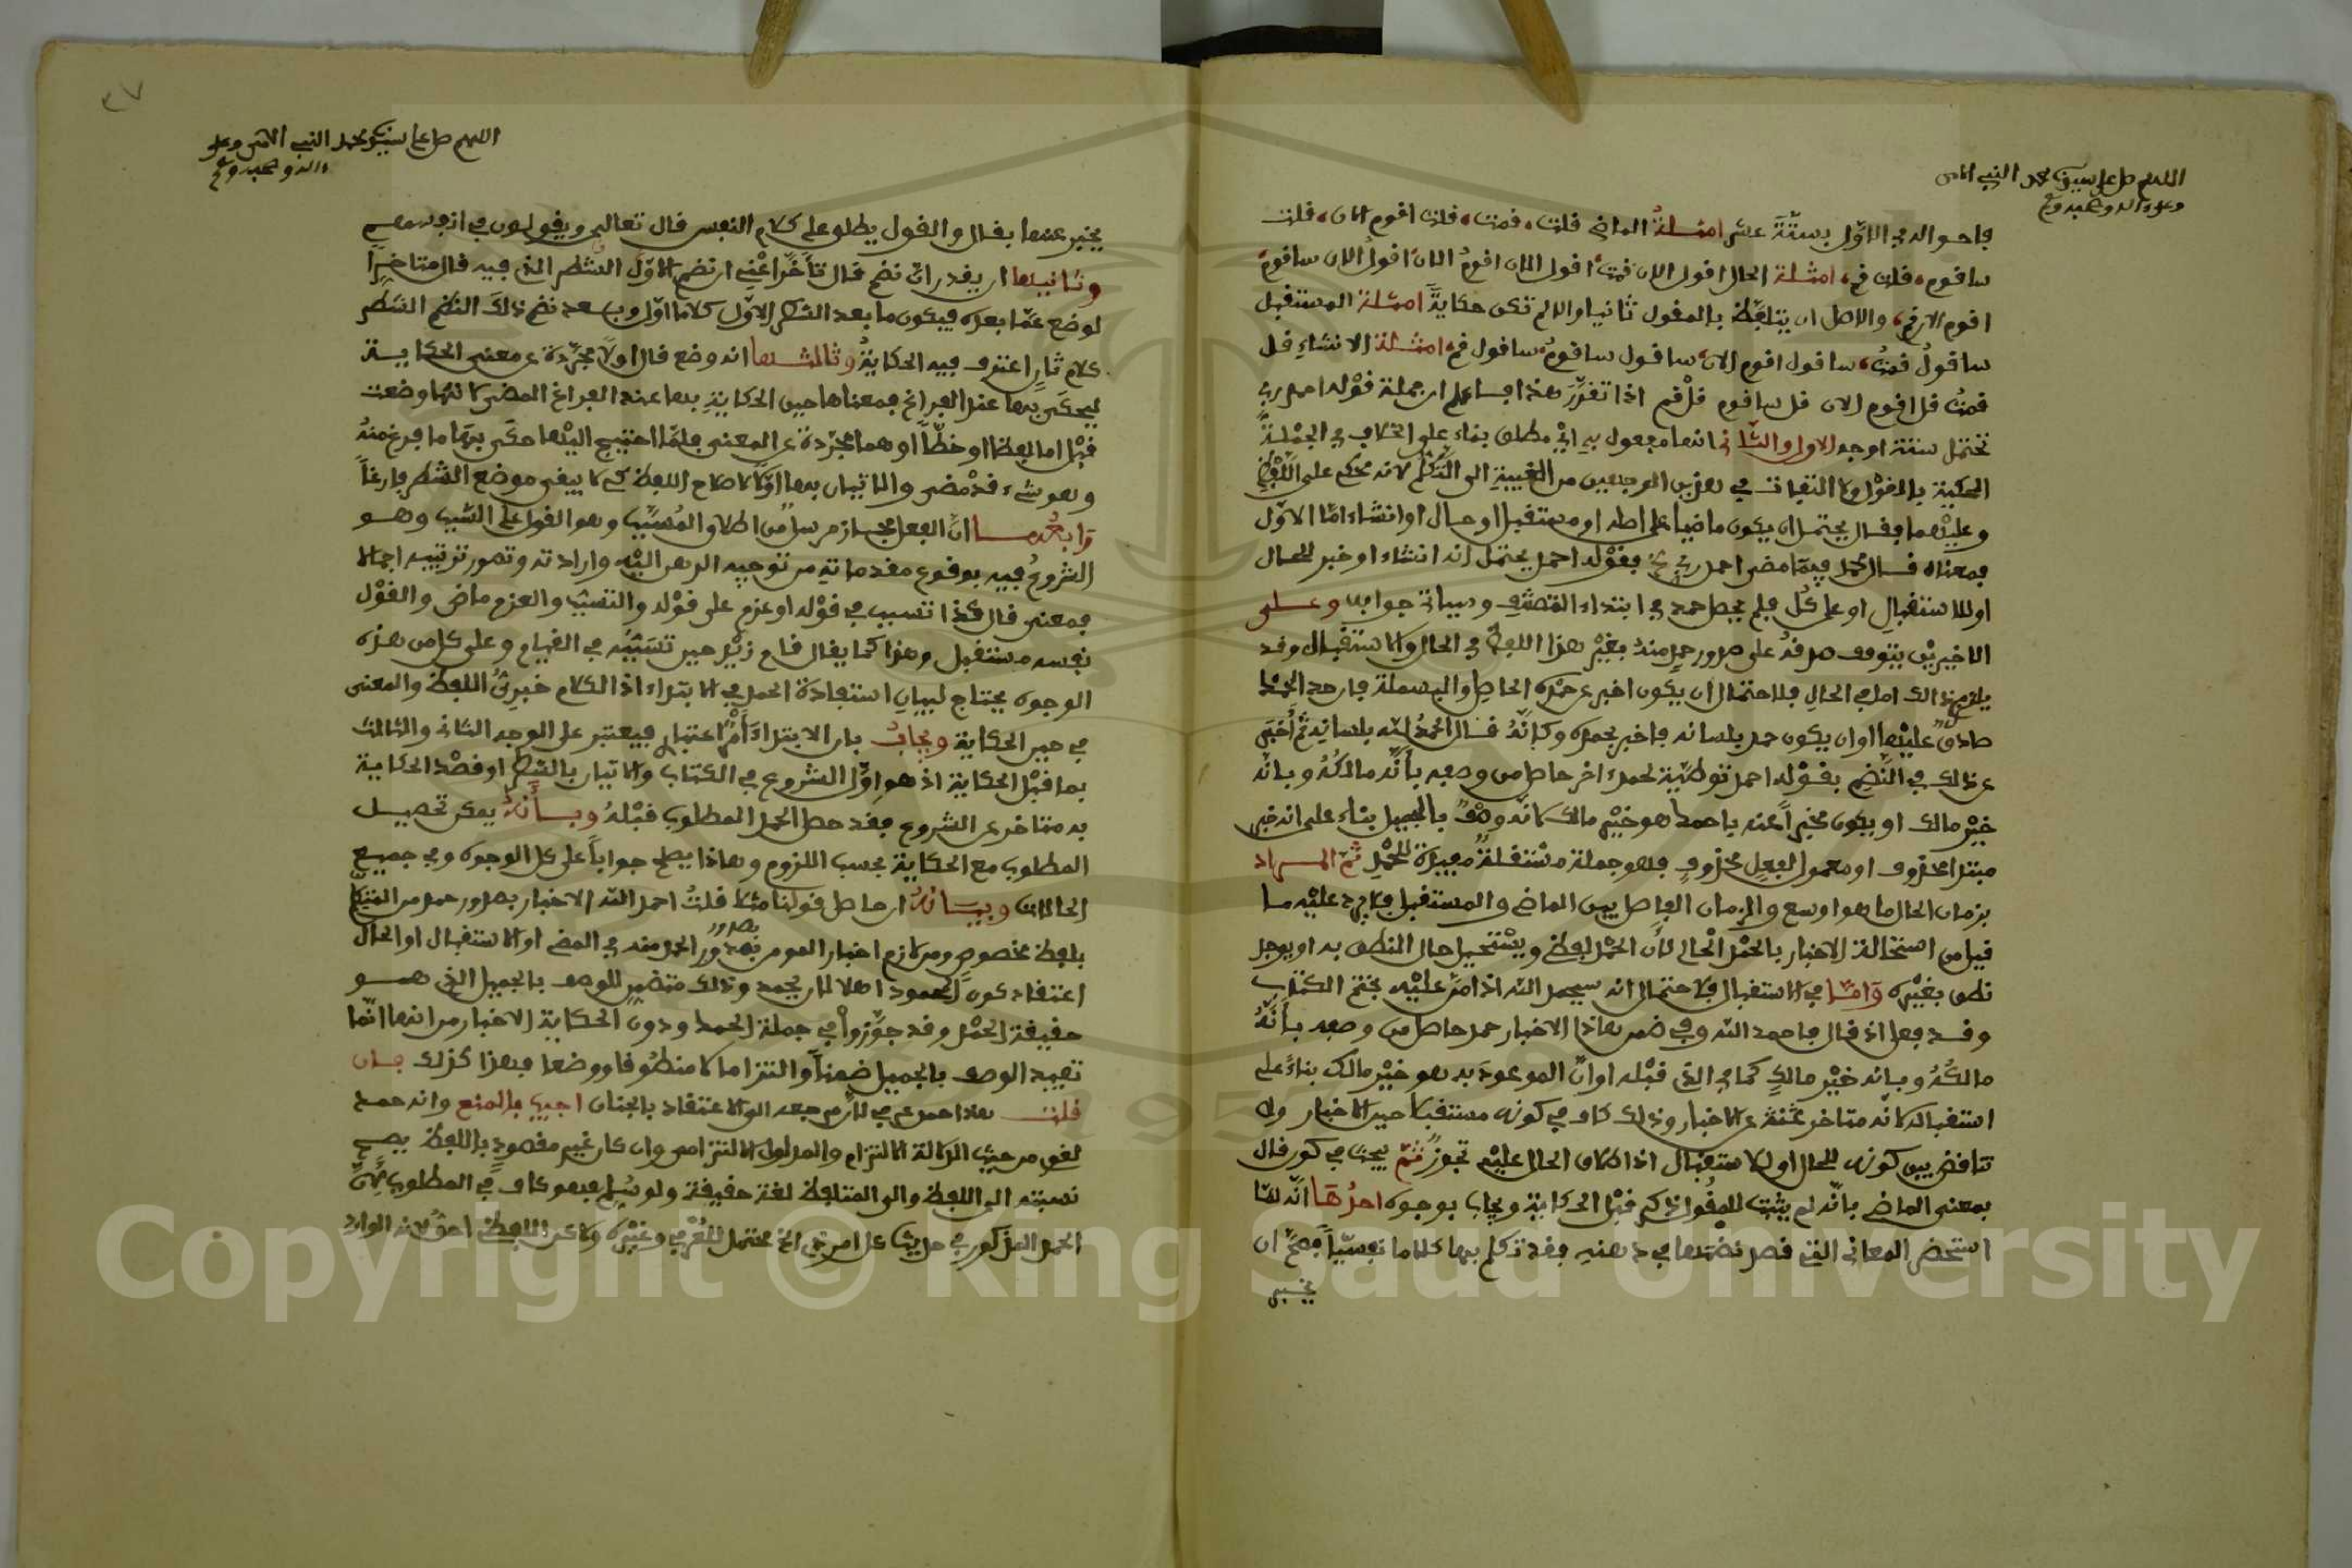 اللهم صل على سيدنا محمد النبي الامي
وعلى ءاله وصحبه وسلم
فاحواله في الاول بستة عشر امثلة الماضي قلت، قمت، قلت اقوم الان، قلت
ساقوم، قلت قم، امثلة الحال اقول الان قمت اقول الان اقوم الان اقول الان ساقوم
اقوم الان قم، والاصل ان يتلفظ بالمقول ثانيا والا لم تكن حكاية امثلة المستقبل
ساقول قمت، ساقول اقوم الان، ساقول ساقوم، ساقول قم، امثلة الانشاء قل
قمت قل اقوم الان قل ساقوم قل قم اذا تقرر هذا فاعلم ان جملة قوله احمد ربي
تحتمل ستة اوجه الاول والثاني انها مفعول به اي مطلق بناء على الخلاف في الجملة
المحكية بالقول ولا التفات في هذين الوجهين من الغيبة الى التكلم لانه محكم على اللفظ
وعليهما فقال يحتمل ان يكون ماضيا على اصله او مستقبل او حال او انشاء اما الاول
فمعناه قال محمد فيما مضى احمد ربي فقوله احمد يحتمل انه انشاء او خبر للحال
او للاستقبال او على كل فلم يحصل حمد في ابتداء التصنيف وسياتي جوابه وعلى
الاخيرين يتوقف صدقه على صدور حمد منه بغير هذا اللفظ في الحال والاستقبال وقد
يلتزم ذالك اما في الحال فلاحتمال ان يكون اخبر عن حمده الحاصل والبسملة فارحد الحمد
صادق عليها او ان يكون حمد بلسانه فاخبر بحمده وكانه قال الحمد لله بلسانه ثم اخبر
عن ذلك في النظم بقوله احمد توطئة لحمد اخر حاصل من وصفه بانه مالكه وبانه
خير مالك او يكون مخبرا عنه باحمد هو خير مالك لانه وصف بالجميل بناء على انه خبر
مبتدا محذوف او معمول لفعل محذوف فهو جملة مستقلة مفيدة للحمد ثم المراد
بزمان الحال ما هو اوسع والزمان الفاصل بين الماضي والمستقبل فلا يرد عليه ما
قيل من استحالة الاخبار بالحمد الحالي لان الحمد لفظ ويستحيل حال النطق به او يوجد
نطق بغيره واما في الاستقبال فلاحتمال انه سيحمد الله اذا من عليه بختم الكتاب
وقد فعل اذ قال فاحمد الله وفي ضمن هاذا الاخبار حمد حاصل من وصفه بانه
مالكه وبانه خير مالك كما في الذي قبله او ان الموعود به هو خير مالك بناء على
استقباله لانه متاخر عن الاخبار وذلك كاف في كونه مستقبلا حين الاخبار ولا
تناقض بين كونه للحال او للاستقبال اذ اطلاق الحال عليه تجوز ثم يبحث في كون قال
بمعنى الماضي بانه لم يثبت للمقول ذكر قبل الحكاية ويجاب بوجوه احدها انه لما
استحضر المعاني التي قصد نظمها في ذهنه فقد تكلم بها كلاما نفسيا فصح ان
يخبر
٣٧
اللهم صل على سيدنا محمد النبي الامي وعلى
ءاله وصحبه وسلم
يخبر عنها بقال والقول يطلق على كلام النفس قال تعالى ويقولون في انفسهم
وثانيها ان يقدر ان نظم قال تاخر اعني ان نظم الاول الشطر الذي فيه قال متاخرا
لوضع عما بعده فيكون ما بعد الشطر الاول كلاما اول وبعد نظم ذلك النظم الشطر
كلام ثان اعتزف فيه الحكاية وثالثها انه وضع قال اولا مجردة عن معنى الحكاية
ليحكى بها عند الفراغ فمعناها حين الحكاية بها عند الفراغ المضي لانها وضعت
قبل اما لفظا او خطا او هما مجردة عن المعنى فلما احتيج اليها حكى بها ما فرغ منه
وهو شيء قد مضى والاتيان بها اولا لاصلاح اللفظ كي لا يبقى موضع الشطر فارغا
رابعها ان الفعل مجاز مرسل من اطلاق المسبب وهو القول على السبب وهو
الشروع فيه بوقوع مقدماته من توجيه الذهن اليه وارادته وتصور ترتيبه اجمالا
فمعنى قال كذا تسبب في قوله او عزم على قوله والتسبب والعزم ماض والقول
نفسه مستقبل وهذا كما يقال قام زيد حين تسببه في القيام وعلى كل من هذه
الوجوه يحتاج لبيان استفادة الحمد في الابتداء اذ الكلام خبري اللفظ والمعنى
في حين الحكاية ويجاب بان الابتداء امر اعتباري فيعتبر على الوجه الثاني والثالث
بما قبل الحكاية اذ هو اول الشروع في الكتاب والاتيان بالشطر او قصد الحكاية
به متاخر عن الشروع فقد حصل الحمد المطلوب قبله وبانه يمكن تحصيل
المطلوب مع الحكاية بحسب اللزوم وهاذا يصلح جوابا على كل الوجوه وفي جميع
الحالات وبيانه ان حاصل قولنا مثلا قلت احمد الله الاخبار بصدور حمد من المتكلم
بلفظ مخصوص ومن لازم اخبار المومن بصدور الحمد منه في المضي او الاستقبال او الحال
اعتقاد كون المحمود اهلا لان يحمد وذلك متضمن للوصف بالجميل الذي هو
حقيقة الحمد وقد جوزوا في جملة الحمد ودون الحكاية الاخبار من انها انما
تفيد الوصف بالجميل ضمنا والتزاما لا منطوقا ووضعا فهذا كذلك فان
قلت هاذا حمد عرفي لان مرجعه الى الاعتقاد بالجنان اجيب بالمنع وانه حمد
لغوي من حيث الدلالة الالتزام والمدلول الالتزامي وان كان غير مقصود باللفظ يصح
نسبته الى اللفظ والى المتلفظ لغة حقيقة ولو سلم فهو كاف في المطلوب لان
الحمد المذكور في حديث كل امر ذي الخ محتمل للعرفي وغيره ولاكن اللفظي احق لانه الوارد